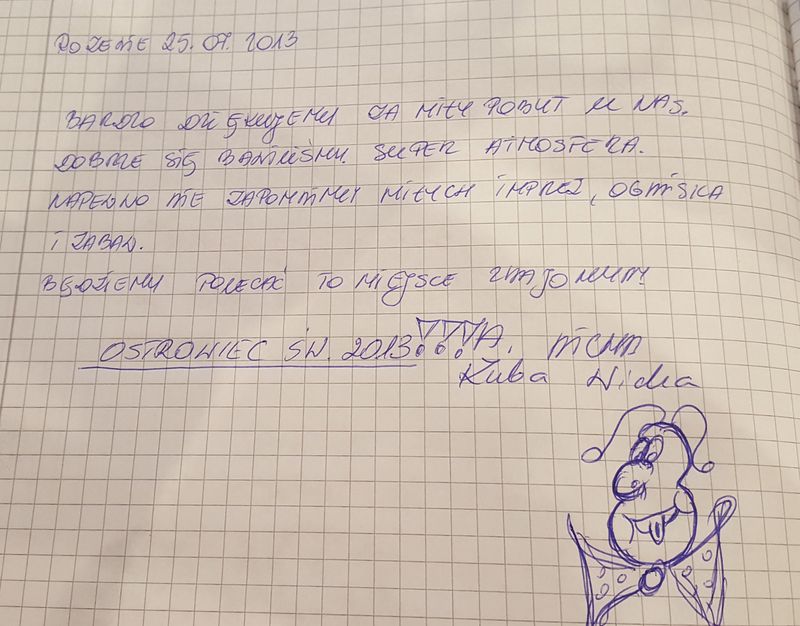 ROŻENIE 25.07. 2013
BARDZO DZIĘKUJEMY ZA MIŁY POBYT U NAS.
DOBRZE SIĘ BAWILIŚMY. SUPER ATMOSFERA.
NAPEWNO NIE ZAPOMNIMY MIŁYCH IMPREZ, OGNISKA
I ZABAW.
BĘDZIEMY POLECAĆ TO MIEJSCE ZNAJOMYM!
OSTROWIEC ŚW. 2013!!! A.
Kuba